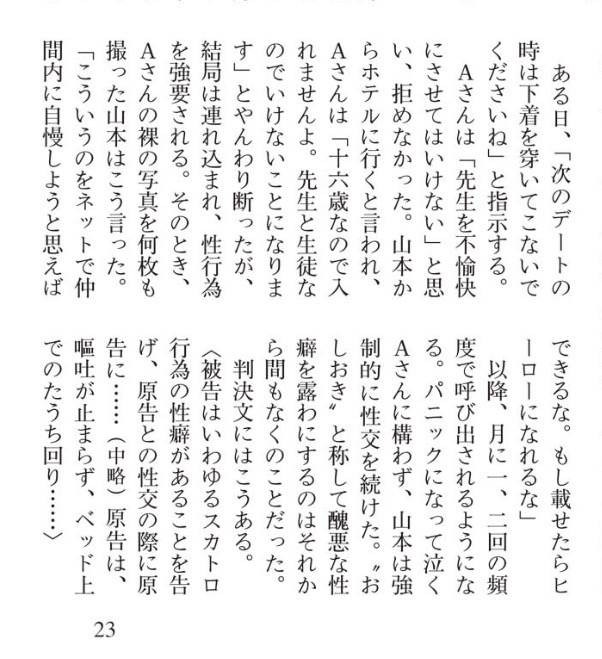 ある日、「次のデートの
時は下着を穿いてこないで
くださいね」と指示する。
Aさんは「先生を不愉快
にさせてはいけない」と思
い、拒めなかった。山本か
らホテルに行くと言われ、
Aさんは「十六歳なので入
れませんよ。先生と生徒な
のでいけないことになりま
す」とやんわり断ったが、
結局は連れ込まれ、性行為
を強要される。そのとき、
Aさんの裸の写真を何枚も
撮った山本はこう言った。
「こういうのをネットで仲
間内に自慢しようと思えば
できるな。もし載せたらヒ
ーローになれるな」
以降、月に一、二回の頻
度で呼び出されるようにな
る。パニックになって泣く
Aさんに構わず、山本は強
制的に性交を続けた。〝お
しおき〟と称して醜悪な性
癖を露わにするのはそれか
ら間もなくのことだった。
判決文にはこうある。
〈被告はいわゆるスカトロ
行為の性癖があることを告
げ、原告との性交の際に原
告に……（中略）原告は、
嘔吐が止まらず、ベッド上
でのたうち回り……〉
23